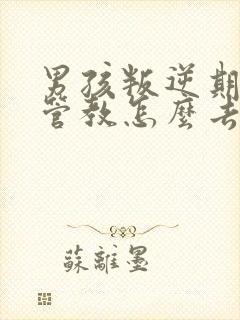 男孩叛逆期
管教怎麼去
蘇離墨